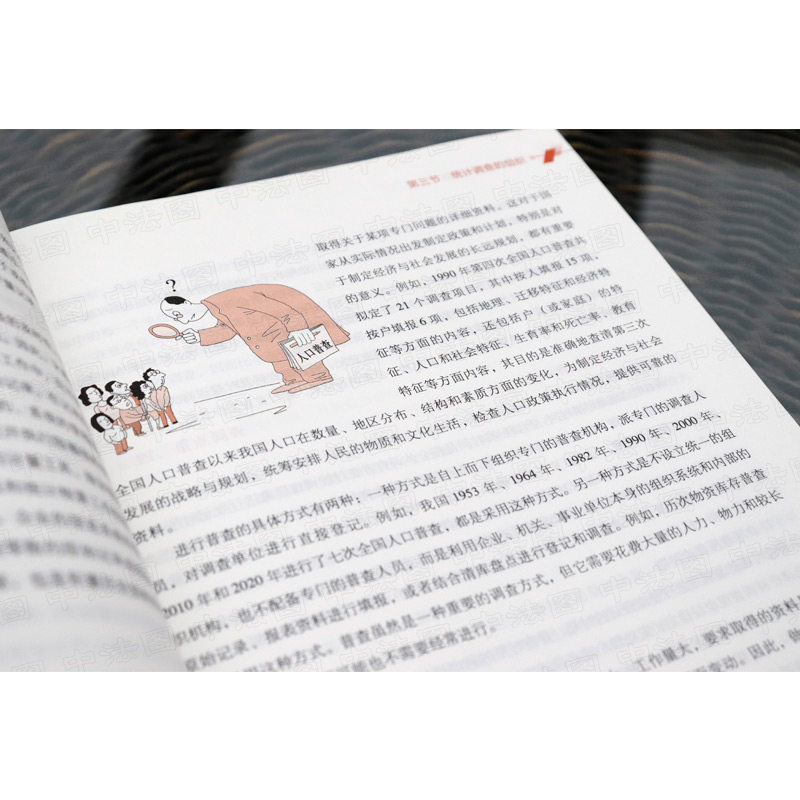 第三节 统计调查的组织
取得关于某项专门问题的详细资料。这对于国
家从实际情况出发制定政策和计划，特别是对
于制定经济与社会发展的长远规划，都有重要
的意义。例如，1990 年第四次全国人口普查共
拟定了 21 个调查项目，其中按人填报 15 项，
按户填报 6 项，包括地理、迁移特征和经济特
征等方面的内容，还包括户（或家庭）的特
征、人口和社会特征、生育率和死亡率、教育
特征等方面内容，其目的是准确地查清第三次
?
人口普查
全国人口普查以来我国人口在数量、地区分布、结构和素质方面的变化，为制定经济与社会
发展的战略与规划，统筹安排人民的物质和文化生活，检查人口政策执行情况，提供可靠的
资料。
进行普查的具体方式有两种：一种方式是自上而下组织专门的普查机构，派专门的调查人
员，对调查单位进行直接登记。例如，我国 1953 年、1964 年、1982 年、1990 年、2000 年、
2010 年和 2020 年进行了七次全国人口普查，都是采用这种方式。另一种方式是不设立统一的组
织机构，也不配备专门的普查人员，而是利用企业、机关、事业单位本身的组织系统和内部的
原始记录、报表资料进行填报，或者结合清库盘点进行登记和调查。例如，历次物资库存普查
用这种方式。普查虽然是一种重要的调查方式，但它需要花费大量的人力、物力和较长
可能也不需要经常进行。
工作量大，要求取得的资料
变动。因此，做
中法图